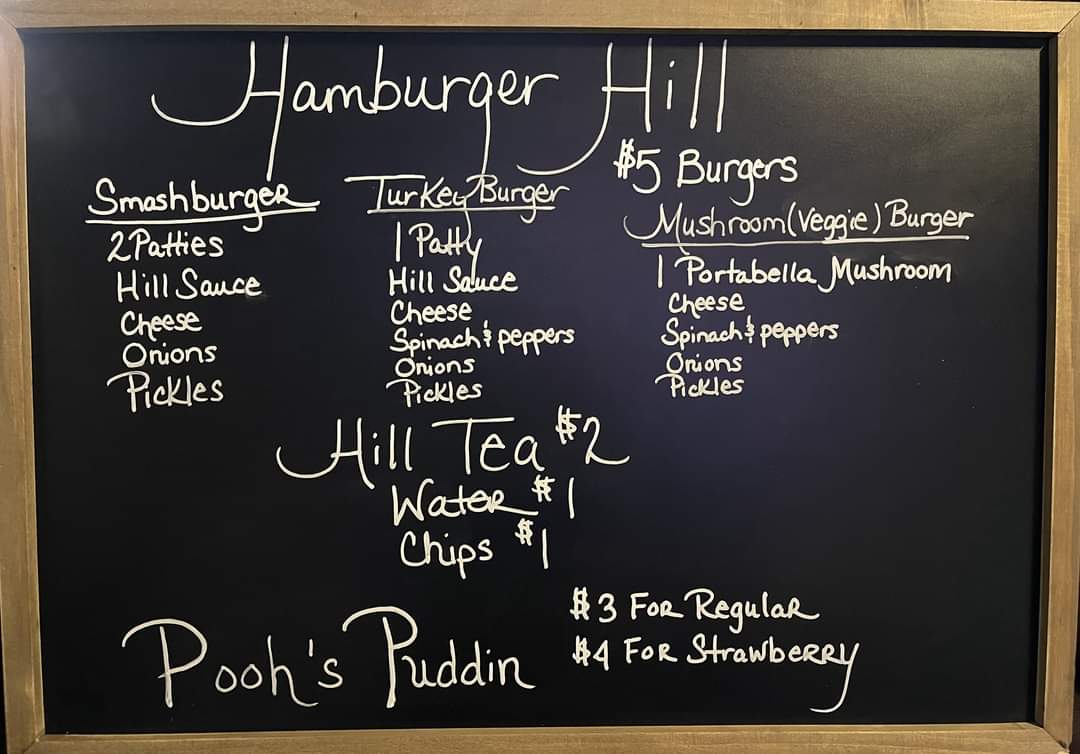 Hamburger Hill
$5 Burgers
Smashburger
2 Patties
Hill Sauce
Cheese
Onions
Pickles
Turkey Burger
1 Patty
Hill Sauce
Cheese
Spinach & peppers
Onions
Pickles
Mushroom (Veggie) Burger
1 Portabella Mushroom
Cheese
Spinach & peppers
Onions
Pickles
Hill Tea $2
Water $1
Chips $1
Pooh's Puddin
$3 For Regular
$4 For Strawberry